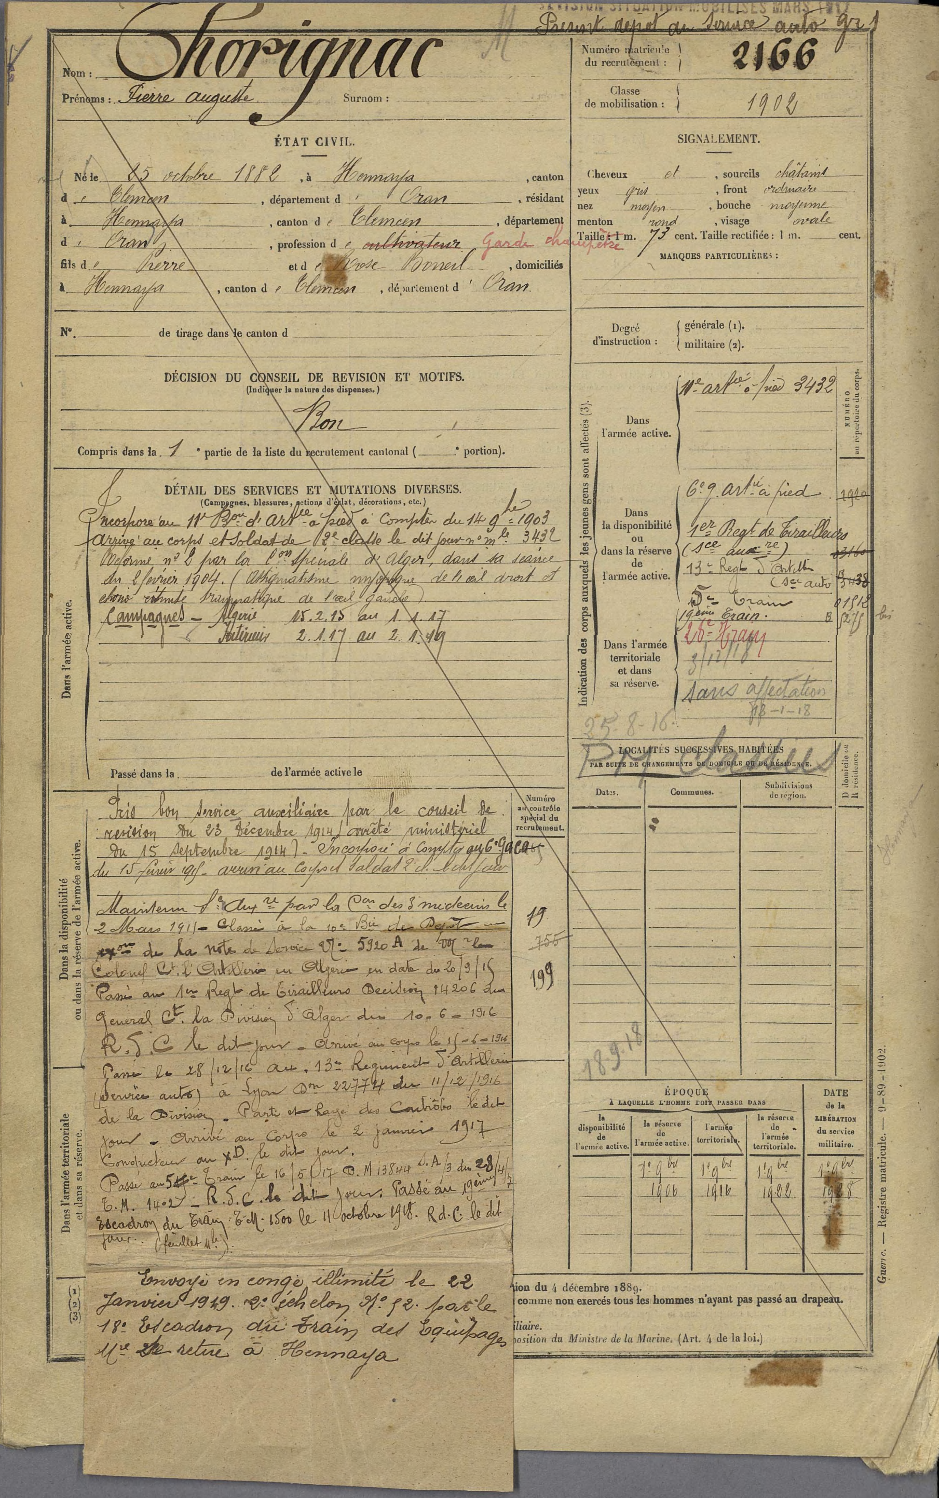 REVISION SITUATION MOBILISES MARS 1917
Présent dépôt du Service auto
Nom : Thorignac
Prénoms : Pierre auguste Surnom :
Numéro matricule du recrutement : 2166
Classe de mobilisation : 1902
ÉTAT CIVIL.
Né le 25 octobre 1882, à Hennaya, canton
de Tlemcen, département d' Oran, résidant
à Hennaya, canton de Tlemcen, département
d' Oran, profession de cultivateur Garde champêtre
fils de Pierre et de Rose Boneil, domiciliés
à Hennaya, canton de Tlemcen, département d' Oran
N°. de tirage dans le canton d
SIGNALEMENT.
Cheveux et, sourcils châtains
yeux gris, front ordinaire
nez moyen, bouche moyenne
menton rond, visage ovale
Taille : 1 m. 73 cent. Taille rectifiée : 1 m. cent.
MARQUES PARTICULIÈRES :
Degré d'instruction :
générale (1).
militaire (2).
DÉCISION DU CONSEIL DE REVISION ET MOTIFS.
(Indiquer la nature des dispenses.)
Bon
Compris dans la 1e partie de la liste du recrutement cantonal ( e portion).
DÉTAIL DES SERVICES ET MUTATIONS DIVERSES.
(Campagnes, blessures, actions d'éclat, décorations, etc.)
Incorporé au 11e Bon d'artie à pied à compter du 14 9bre 1903
Arrivé au corps et soldat de 2e classe le dit jour no mle 3432
Réformé no 2 par la Con spéciale d'Alger, dans sa séance
du 2 février 1904. (Astigmatisme myopique de l'œil droit et
traumatique de l'œil gauche)
Campagnes - Algérie 15.2.15 au 1.1.17
Intérieur 2.1.17 au 2.1.19
Dans l'armée active.
Passé dans la de l'armée active le
Indication des corps auxquels les jeunes gens sont affectés (3).
NUMÉRO au répertoire du corps.
Dans l'armée active.
11e artie à pied 3432
Dans la disponibilité ou dans la réserve de l'armée active.
6e g. artie à pied
1er Regt de Tirailleurs
(sce auxre)
13e Regt d'Artill
(Sce auto)
5e Train
19ème Train.
Dans l'armée territoriale et dans sa réserve.
20e Train
3/12/18
sans affectation
25-8-16
LOCALITÉS SUCCESSIVES HABITÉES
PAR SUITE DE CHANGEMENTS DE DOMICILE OU DE RÉSIDENCE.
Dates. Communes. Subdivisions de région. D domicile ou R résidence.
Numéro au contrôle spécial du recrutement.
19
755
199
Dans la disponibilité ou dans la réserve de l'armée active.
Pris bon service auxiliaire par le conseil de
révision du 23 Décembre 1914 (arrêté ministériel
du 15 septembre 1914) - Incorporé à compter au 6e
du 15 février 1915 - arrivé au Corps et Soldat 2e cl. ledit jour
Maintenu Sce Auxre par la Con des 3 médecins le
2 Mars 1915 - Classé à la 10e Bie de Dépôt
de la note de service No 5920 A de le
Colonel Ct l'Artillerie en Algérie en date du 20/9/15
Passé au 1er Regt de Tirailleurs Décision 14206 du
Général Ct la Division d'Alger du 10-6-1916
R.D.C le dit jour - Arrivé au corps le 15-6-1916
Passé le 28/12/16 au 13e Régiment d'Artillerie
(Service auto) à Lyon Don 22774 du 11/12/1916
de la Division - Parti et Rayé des Contrôles le dit
jour - Arrivé au Corps le 2 janvier 1917
Conducteur au XD. le dit jour.
Passé au 5e Train le 16/5/17 D.M 13844
T.M. 1402 - R.D.C. le dit jour. Passé au 19ème
Escadron du Train T.M. 1500 le 11 octobre 1918. R.d.C. le dit
jour. (feuillet Mle)
Dans l'armée territoriale et dans sa réserve.
Envoyé en congé illimité le 22
Janvier 1919. 2e échelon No 52. par le
18e Escadron du Train des Equipages
Mre Se retire à Hennaya
18.9.18
ÉPOQUE
À LAQUELLE L'HOMME DOIT PASSER DANS
la disponibilité de l'armée active. la réserve de l'armée active. l'armée territoriale. la réserve de l'armée territoriale.
DATE de la LIBÉRATION du service militaire.
1er 9bre 1906
1er 9bre 1916
1er 9bre 1922
1er 9bre 1928
ion du 4 décembre 1889.
comme non exercés tous les hommes n'ayant pas passé au drapeau.
iliaire.
position du Ministre de la Marine. (Art. 4 de la loi.)
Guerre. — Registre matricule. — 9-89-1902.